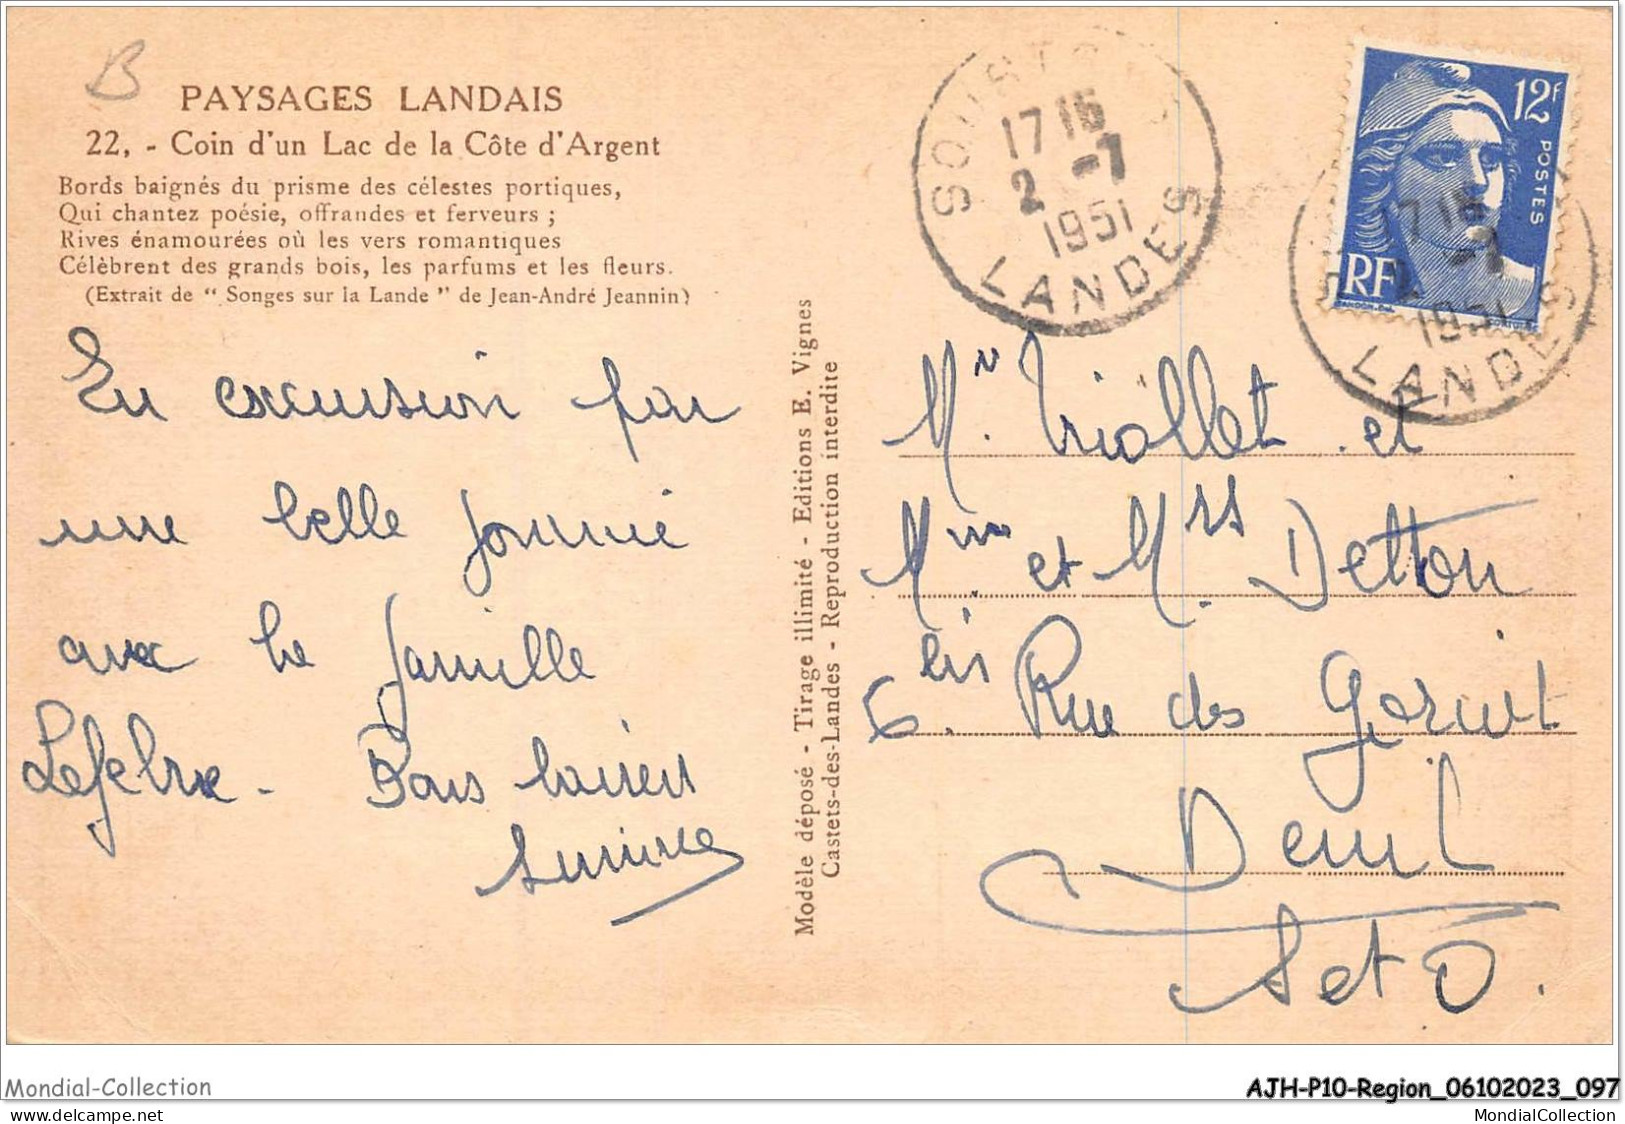 B
PAYSAGES LANDAIS
22, - Coin d'un Lac de la Côte d'Argent
Bords baignés du prisme des célestes portiques,
Qui chantez poésie, offrandes et ferveurs ;
Rives énamourées où les vers romantiques
Célèbrent des grands bois, les parfums et les fleurs.
(Extrait de “ Songes sur la Lande ” de Jean-André Jeannin)
En excursion par
une belle journée
avec la famille
Lefebvre - Bons baisers
Modèle déposé - Tirage illimité - Editions E. Vignes
Castets-des-Landes - Reproduction interdite
17 15
2 -7
1951
LANDES
12F
POSTES
RF
17 15
2 -7
1951
LANDES
Mr. Triollet et
Mme et Mrs Detton
6 bis. Rue des
Deuil
S et O.
Mondial-Collection
AJH-P10-Region_06102023_097
MondialCollection